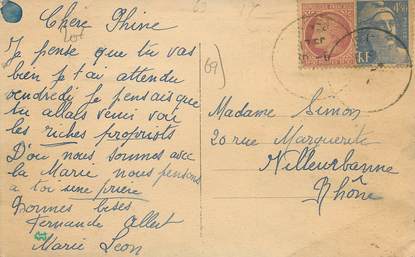 Chère Phine
Je pense que tu vas
bien je t'ai attendu
vendredi je pensais que
tu allais venir voir
les riches propriots
D'où nous sommes avec
la Marie nous pensons
a toi une prière
Bonnes bises
Fernande Albert
Marie Leon
69
Madame Simon
20 rue Marguerite
Villeurbanne
Rhône
RF